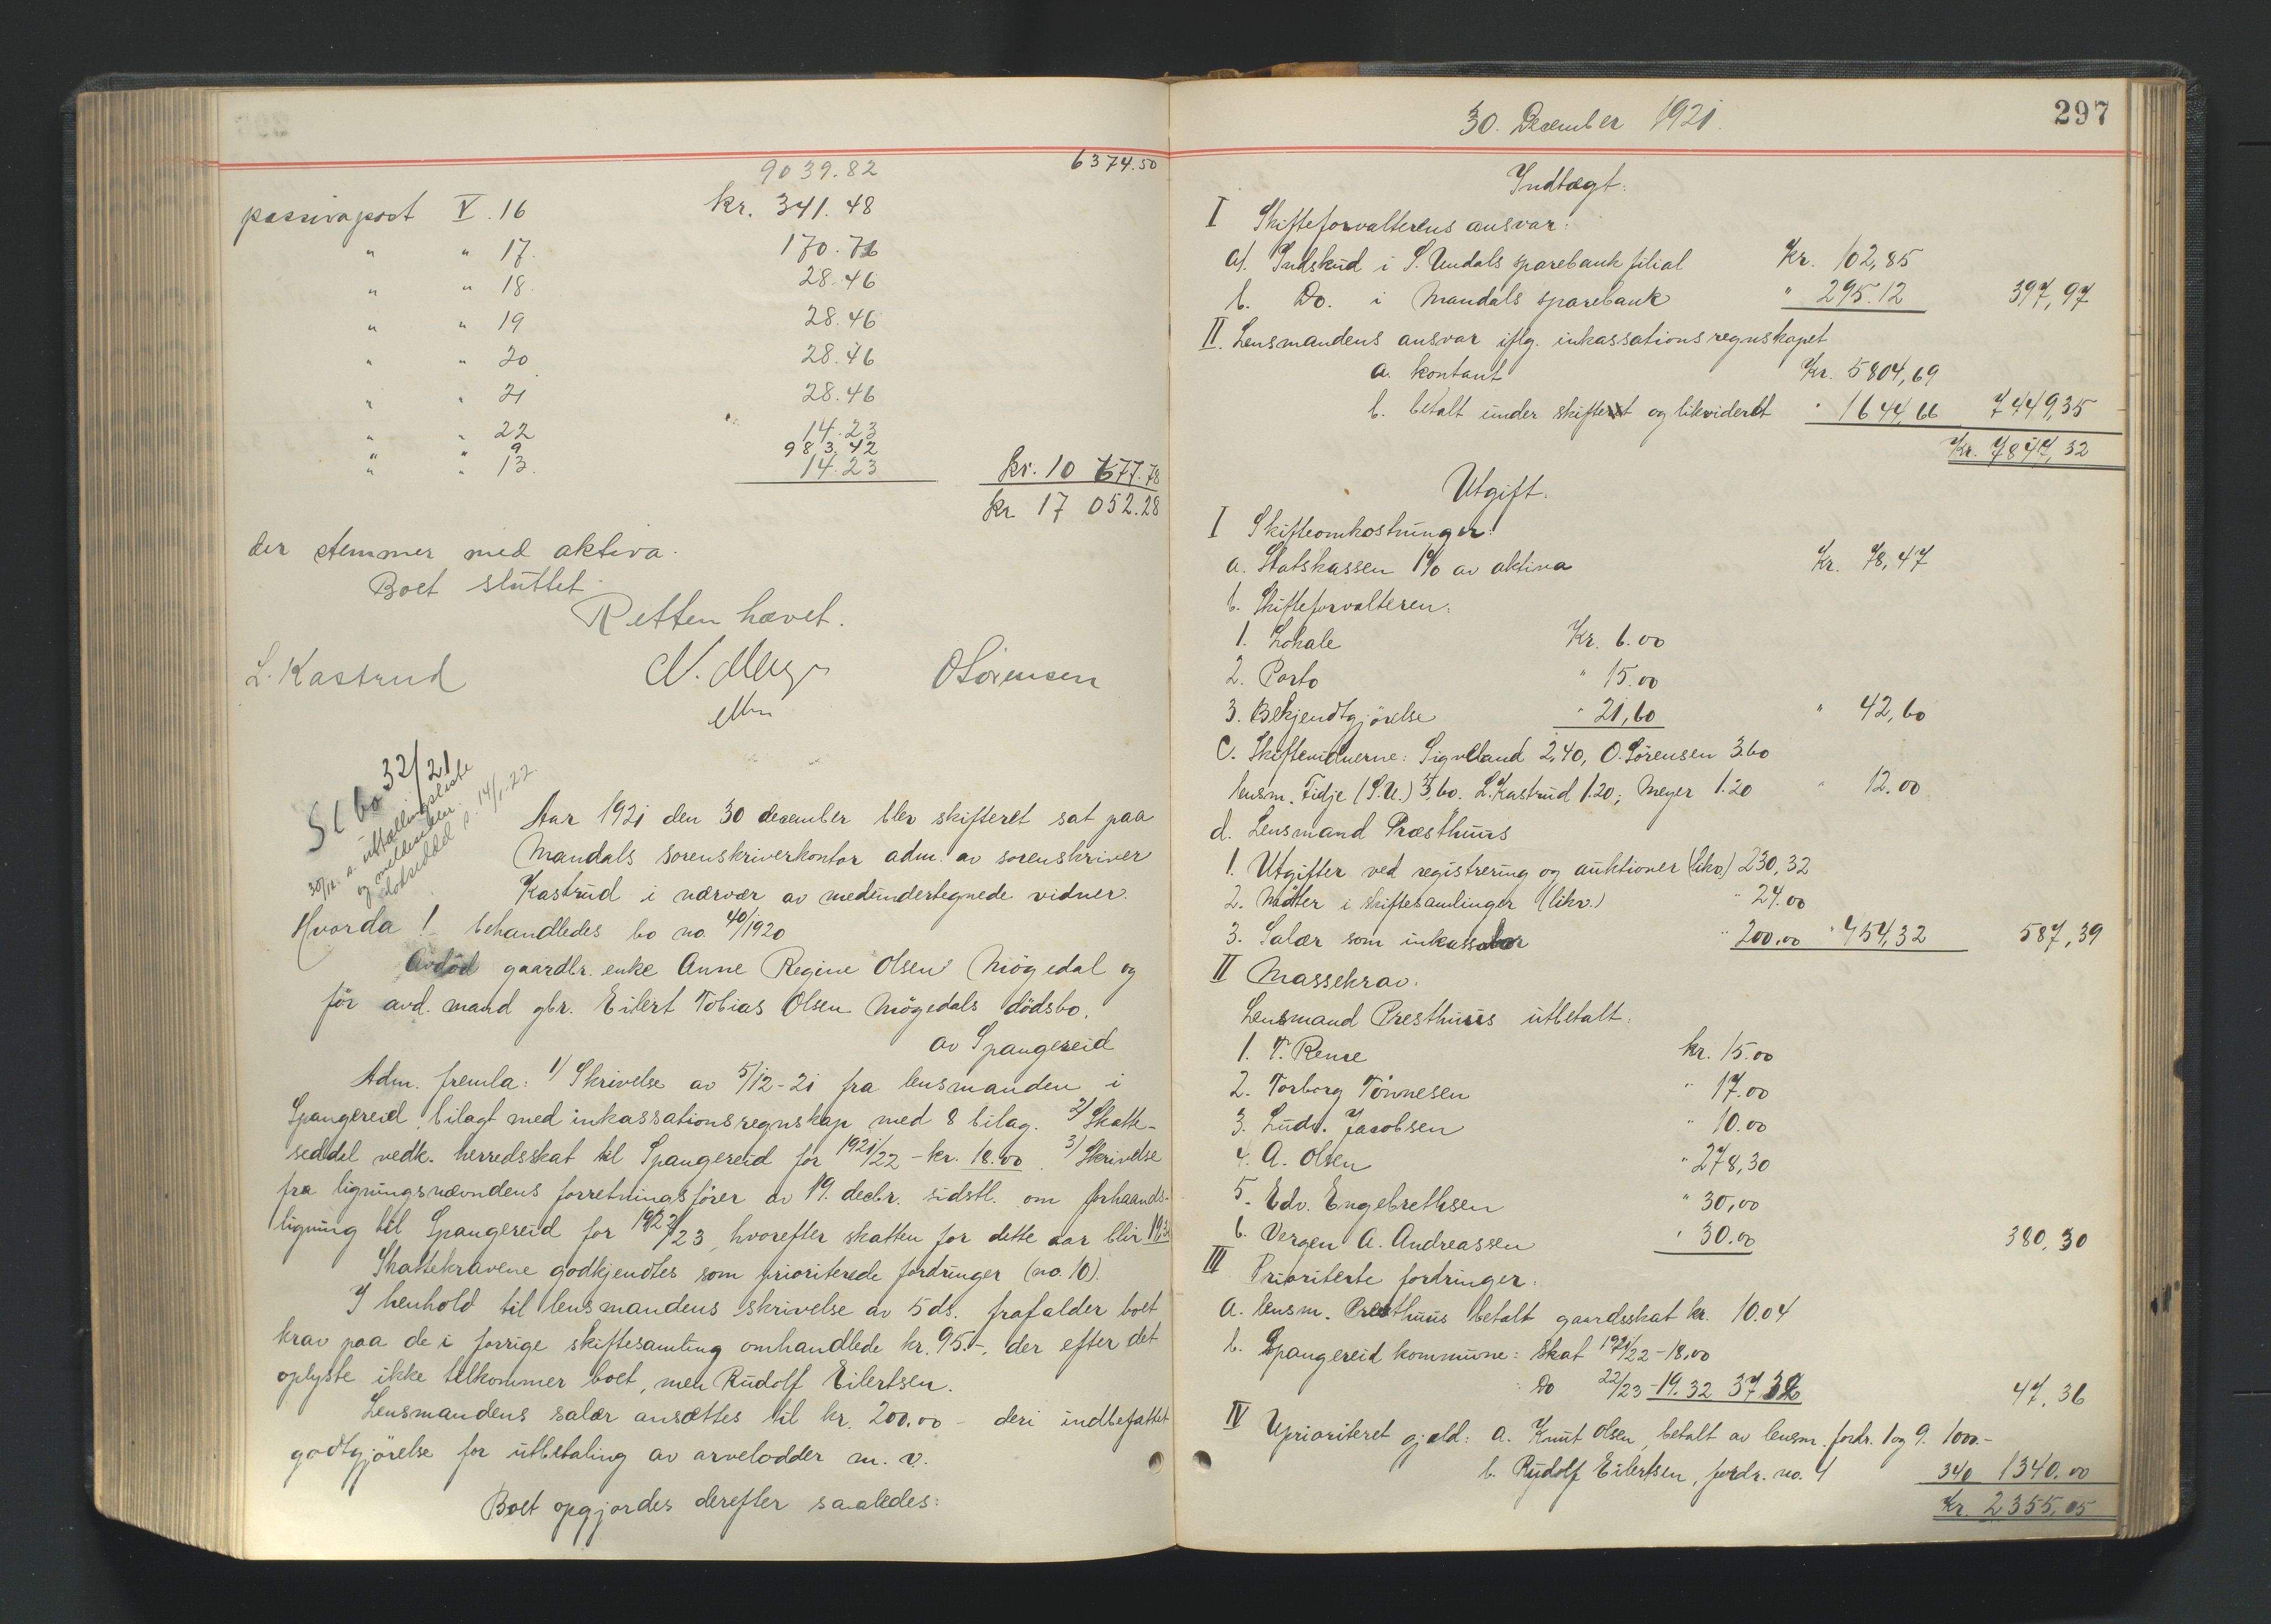 9039.82 6374.50
passivapost V. 16 kr. 341.48
" " 17. 170.76
" " 18. 28.46
" " 19 28.46
" " 20 28.46
" " 21 28.46
" " 22 14.23
" " 9 983.42
" " 13. 14.23 kr. 10 677.78
kr 17 052.28
der stemmer med aktiva.
Boet sluttet.
Retten hævet.
L. Kastrud N. Meyer OSörensen
Sc bo 32/21
30/12. s. utfallingsliste
og meldes
s. 14/1-22
Aar 1921 den 30 december blev skifteret sat paa
Mandals sorenskriverkontor adm. av sorenskriver
Kastrud i nærvær av medundertegnede vidner.
Hvorda! behandledes bo no. 40/1920
Avdöd gaardbr. enke Anne Regine Olsen Mögedal og
för avd. mand gbr. Eilert Tobias Olsen Mögedals dödsbo.
av Spangereid
Adm. fremla: 1/ Skrivelse av 5/12-21 fra lensmanden i
Spangereid bilagt med inkassationsregnskap med 8 bilag. 2/ Skatte-
seddel vedk. herredsskat til Spangereid for 1921/22 - kr. 18.00. 3/ Skrivelse
fra ligningsnævndens forretningsförer av 19. decbr. sidstl. om forhaands-
ligning til Spangereid for 1922/23, hvorefter skatten for dette aar blir 19.32
Skattekravene godkjendtes som prioriterede fordringer (no. 10).
I henhold til lensmandens skrivelse av 5 ds. frafalder boet
krav paa de i forrige skiftesamling omhandlede kr. 95.-, der efter det
oplyste ikke tilkommer boet, men Rudolf Eilertsen.
Lensmandens salær ansættes til kr. 200.00 - deri indbefattet
godtgjörelse for utbetaling av arvelodder m. v.
Boet opgjordes derefter saaledes:
30. December 1921. 297
Indtægt.
I Skifteforvalterens ansvar:
a/. Indskud i S. Undals sparebank filial Kr. 102,85
b. Do. i Mandals sparebank " 295.12 397,97
II. Lensmandens ansvar iflg. inkassationsregnskapet
a. kontant Kr. 5804,69
b. betalt under skiftet og likvidert " 1644,66 7449,35
Kr. 7847,32
Utgift.
I Skifteomkostninger:
a. Statskassen 1% av aktiva Kr. 78,47
b. Skifteforvalteren:
1. Lokale Kr. 6.00
2. Porto " 15.00
3. Bekjendtgjörelse " 21,60 " 42,60
C. Skiftevidnerne: Sigveland 2,40, O. Sörensen 3.60
lensm. Fidje (S.U.) 3,60. L. Kastrud 1.20; Meyer 1.20 " 12.00
d. Lensmand Præsthuus
1. Utgifter ved registrering og auktioner (likv.) 230,32
2. Möter i skiftesamlinger (likv.) " 24.00
3. Salær som inkassator " 200.00 " 454,32 587,39
II Massekrav.
Lensmand Presthuus utbetalt:
1. T. Rense kr. 15.00
2. Torborg Tönnesen " 17.00
3. Ludv. Jacobsen " 10.00
4. A. Olsen " 278,30
5. Edv. Engebrethsen " 30,00
6. Vergen A. Andreassen " 30.00 380,30
III Prioriterte fordringer:
a. lensm. Presthuus betalt gaardsskat kr. 10.04
b. Spangereid kommune: skat 1921/22 - 18,00
Do 22/23 - 19.32 37 32 47,36
IV Uprioriteret gjæld: a. Knut Olsen, betalt av lensm. fordr. 1 og 9. 1000.-
b. Rudolf Eilertsen, fordr. no. 4 340 1340.00
Kr. 2355,05